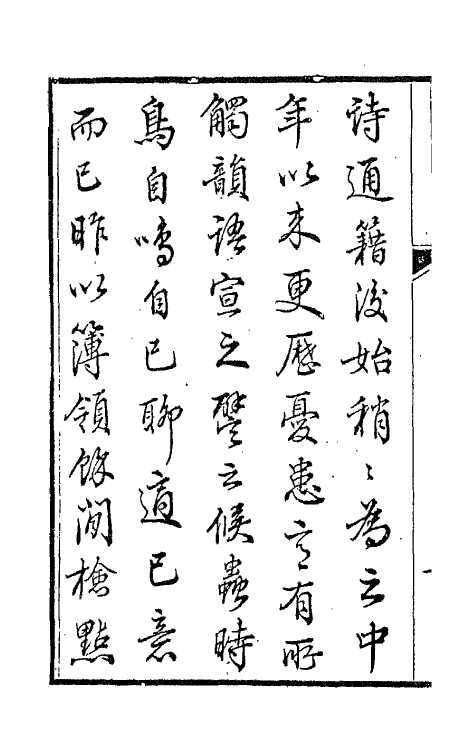 詩通籍後始稍〻為之中
年以來更歷憂患意有所
觸韻語宣之譬之候蟲時
鳥自鳴自已聊適已意
而已昨以簿領餘閒檢點